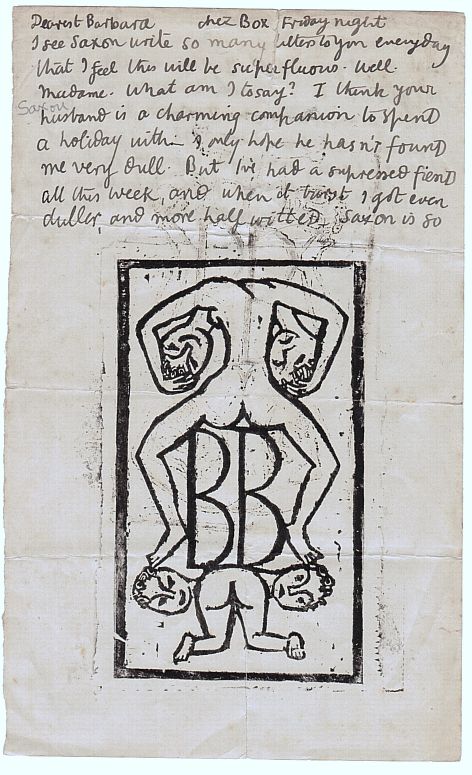 Dearest Barbara chez Box Friday night
I see Saxon write so many letters to you everyday
that I feel this will be superfluous. Well
Madame. What am I to say? I thank your
Saxon
husband is a charming companion to spend
a holiday with. I only hope he hasn't found
me very dull. But I've had a supressed fiend
all this week, and when it burst I got even
duller, and more half witted. Saxon is so
BB